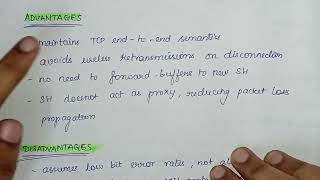 ADVANTAGES
- maintains TCP end-to-end semantics
- avoids useless retransmissions on disconnection
- no need to forward buffers to new SH
- SH doesnot act as proxy, reducing packet loss
propagation
DISADVANTAGES
- assumes low bit error rates, not